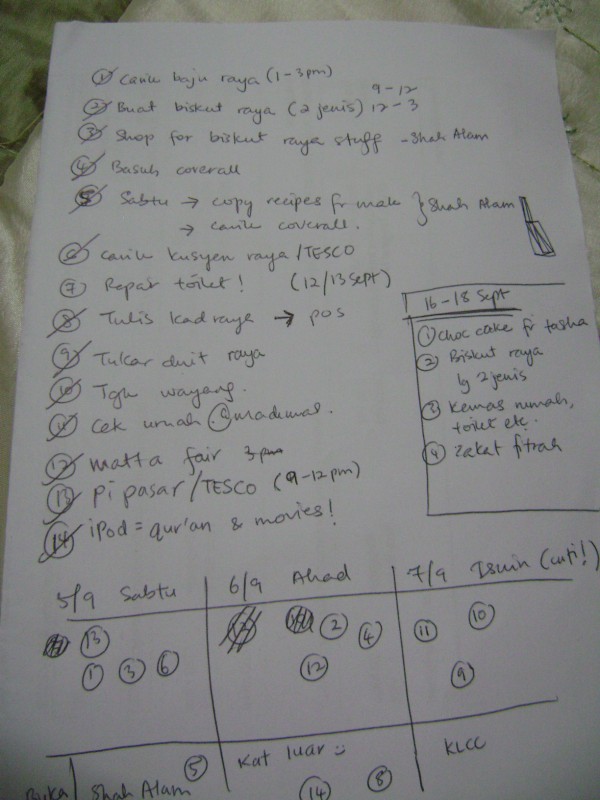 ① Carik baju raya (1-3pm)
9-12
② Buat biskut raya (2 jenis) 12-3
③ Shop for biskut raya stuff - Shah Alam
④ Basuh coverall
⑤ Sabtu → copy recipes fr mak } Shah Alam
→ carik coverall.
⑥ carik kusyen raya/TESCO
⑦ Repair toilet! (12/13 Sept)
⑧ Tulis kad raya → pos
⑨ Tukar duit raya
⑩ Tgk wayang.
⑪ Cek umah
⑫ Matta fair 3pm
⑬ pi pasar/TESCO (9-12pm)
⑭ iPod = qur'an & movies!
16-18 Sept
① Choc cake fr tasha
② Biskut raya
lg 2 jenis
③ Kemas rumah,
toilet etc.
④ Zakat fitrah
5/9 Sabtu 6/9 Ahad 7/9 Isnin (cuti!)
⑬ ② ④ ⑪ ⑩
① ③ ⑥ ⑫ ⑨
Buka Shah Alam ⑤ Kat luar :) KLCC
⑭ ⑧